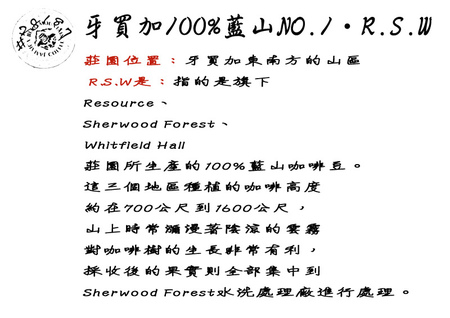 牙買加100%藍山NO.1·R.S.W
莊園位置：牙買加東南方的山區
R.S.W是：指的是旗下
Resource、
Sherwood Forest、
Whitfield Hall
莊園所生產的100%藍山咖啡豆。
這三個地區種植的咖啡高度
約在700公尺到1600公尺，
山上時常瀰漫著陰涼的雲霧
對咖啡樹的生長非常有利，
採收後的果實則全部集中到
Sherwood Forest水洗處理廠進行處理。